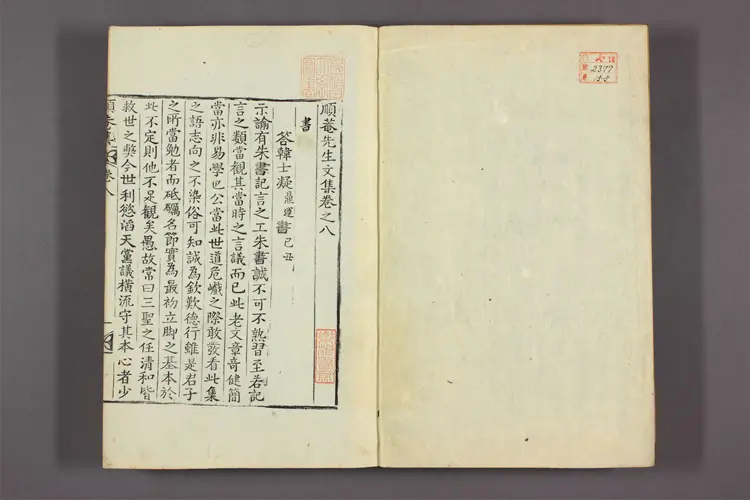 順菴先生文集卷之八
書
答韓士凝鼎運書己丑
示諭有朱書記言之工朱書誠不可不熟習至若記
言之類當觀其當時之言議而已此老文章奇健簡
當亦非易學也公當此世道危巇之際敢發看此集
之語志向之不染俗可知誠爲欽歎德行雖是君子
之所當勉者而砥礪名節實爲最初立脚之基本於
此不定則他不足觀矣愚故常曰三聖之任清和皆
救世之弊今世利慾滔天黨議橫流守其本心者少
卷八
2377